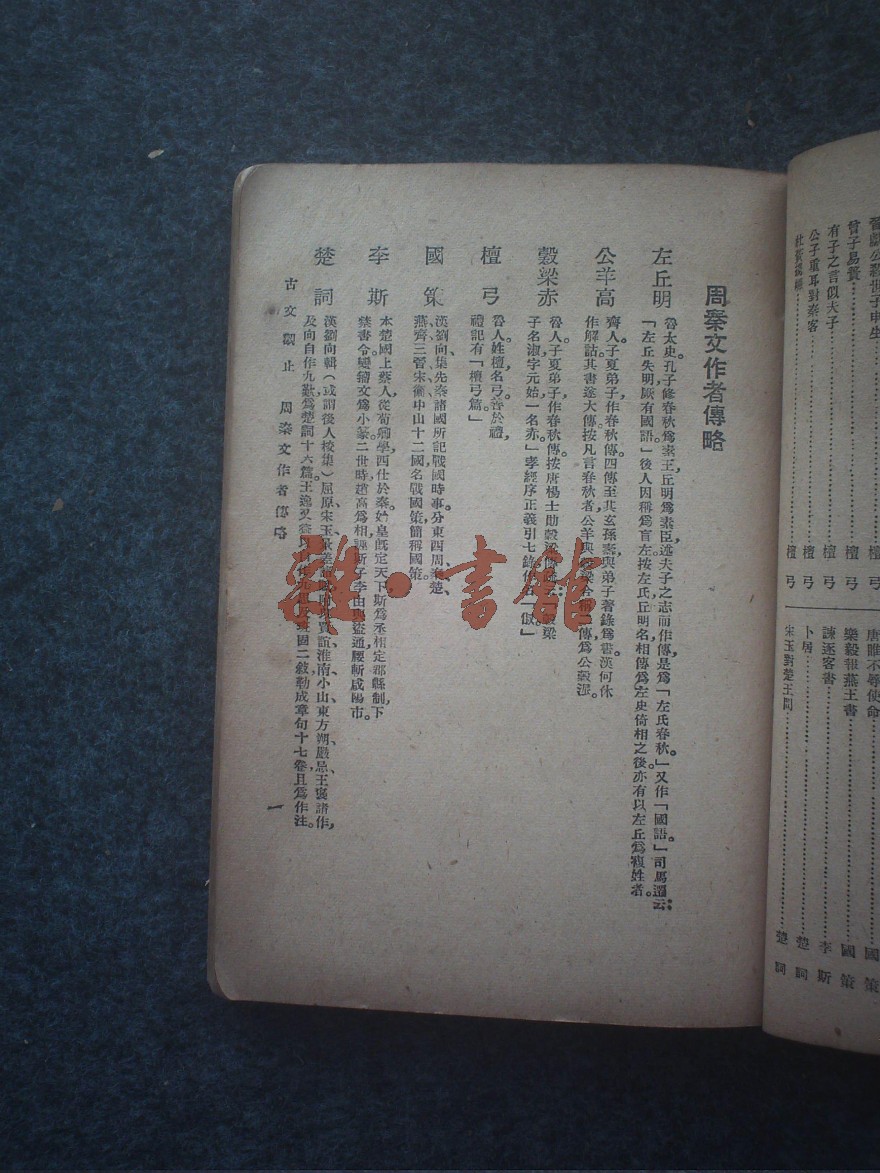 周秦文作者傳略
左丘明
魯太史。孔子修春秋爲素王，丘明爲素臣，述夫子之志而作傳，是爲「左氏春秋。」又作「國語。」司馬遷云：
「左丘失明，厥有國語。」後人因稱爲盲左。按左氏丘明名，相傳爲左史倚相之後。亦有以左丘爲複姓者。
公羊高
齊人。子夏弟子，作春秋傳，四傳至其玄孫壽，與弟子著錄爲書，漢何休
作解詁，其書遂大傳。按凡言春秋者，公羊與穀梁合稱二傳，爲公穀派。
穀梁赤
魯人。子夏弟子，作春秋傳。按唐楊士勛穀梁傳
子名淑，字元始，一名赤。」孝經序正義引七錄作「俶」
檀弓
魯人。姓檀，名弓。善於禮，
禮記有「檀弓篇」
國策
漢劉向集先秦諸國所記戰國時事，分東西周、秦、楚、
燕、齊、三晉、宋、衞、中山十二國，名戰國策，簡稱國策。
李斯
本楚國上蔡人，從荀卿學，西仕於秦。始皇旣定天下，斯爲丞相，定郡縣制，下
禁書令，變籀文爲小篆。二世時，趙高爲相，誣斯子李由與盜通，腰斬咸陽市。
楚詞
漢劉向輯（或謂後人校集）屈原、宋玉、賈誼、淮南小山、東方朔、嚴忌、王褒諸作，
及向自作九歎，爲楚詞十六篇。王逸又 班固二敘，勒成章句十七卷，且爲作注。
古文觀止　周秦文作者傳略
一
晉獻公殺世子申生
曾子易簀 檀弓
有子之言似夫子 檀弓
公子重耳對秦客 檀弓
杜蕢揚觶 檀弓
唐雎不辱使命 國策
樂毅報燕王書 國策
諫逐客書 李斯
卜居 楚詞
宋玉對楚王問 楚詞
雜·書館